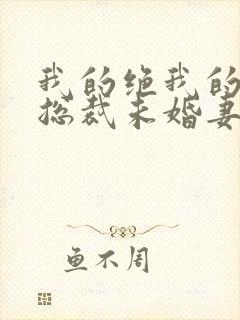 我的绝我的
总裁未婚妻
鱼不周